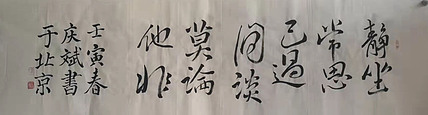 靜坐
常思
己過
闲談
莫論
他非
壬寅春
庆斌書
于北京